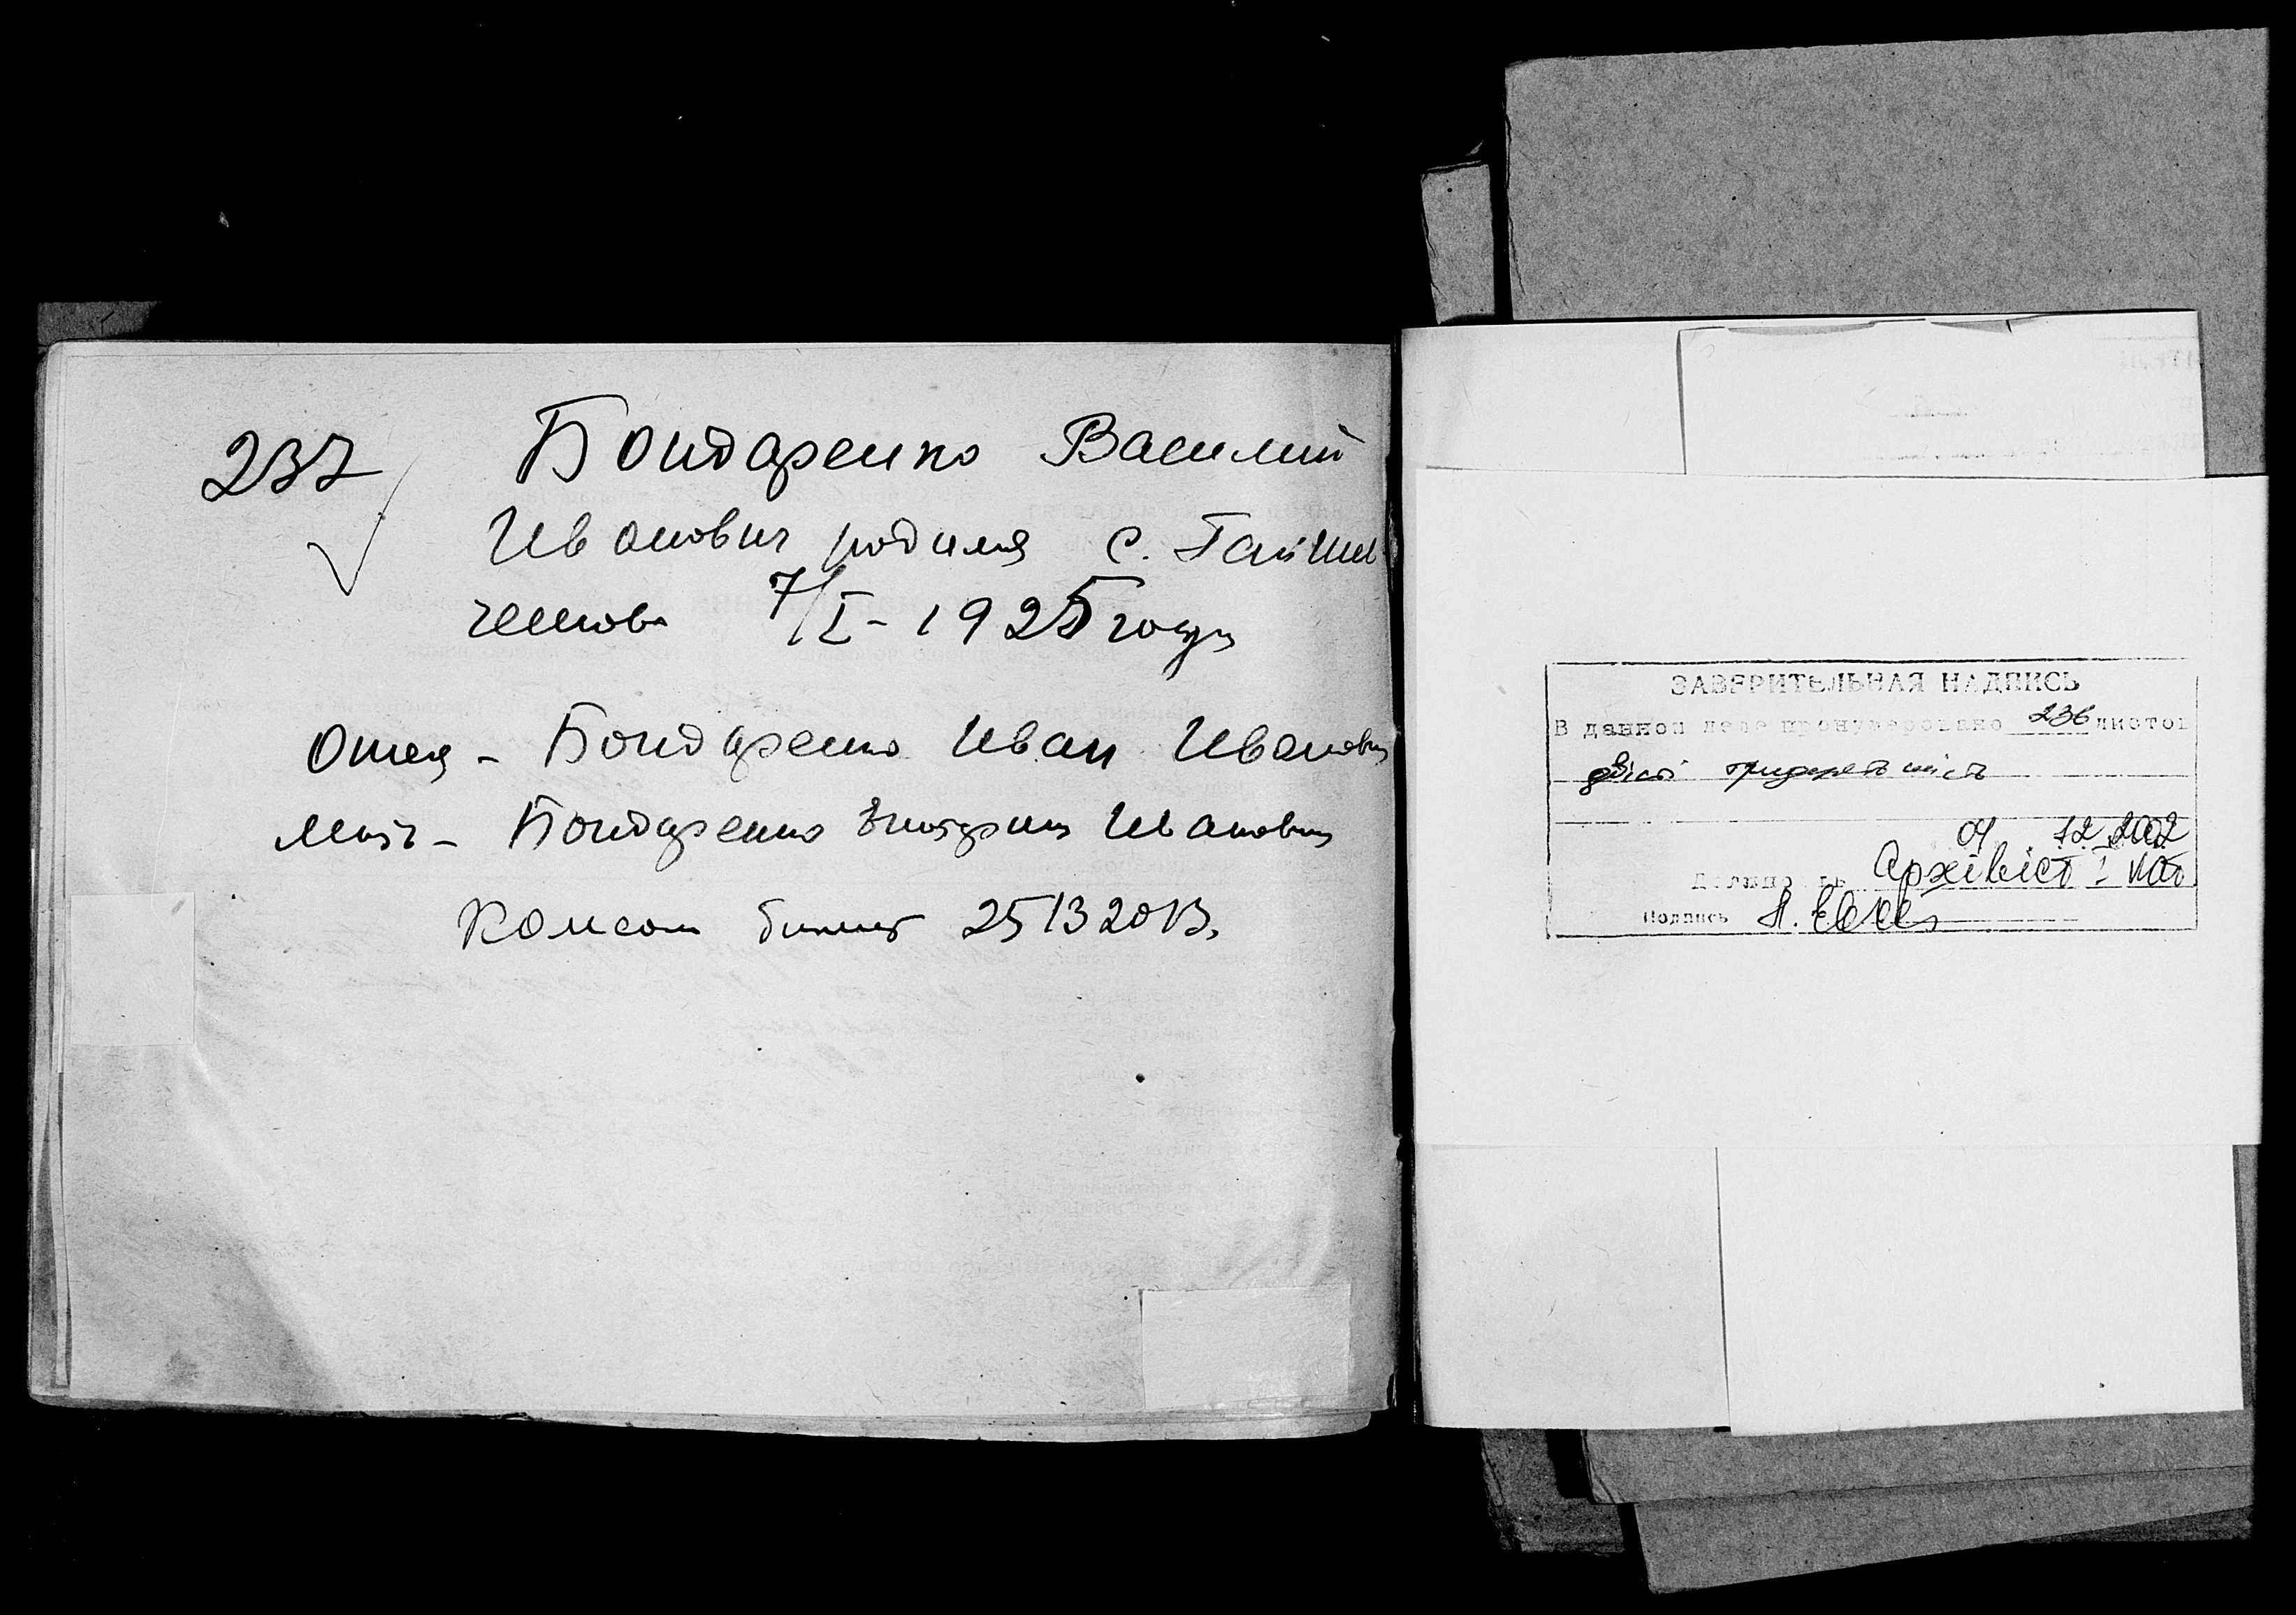 237
Бондаренко Василий
Иванович родился с. Гайши
7/I - 1925 года
Отец - Бондаренко Иван Иванович
Мать - Бондаренко Ивановна
Комсом билет 251320 В.
ЗАВЕРИТЕЛЬНАЯ НАДПИСЬ
В данном деле пронумеровано 236 листов
двісті тридцять шість
04 12 2002
Должность Архівіст I кат
Подпись